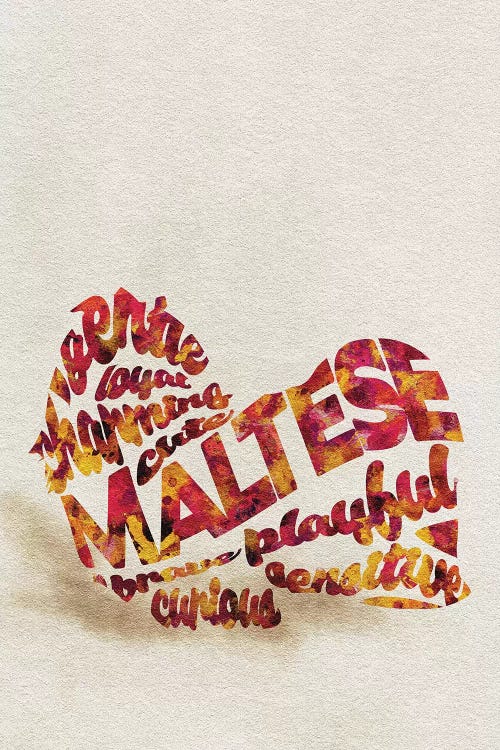 gentle
loyal
charming
cute
MALTESE
playful
brave
sensitive
curious